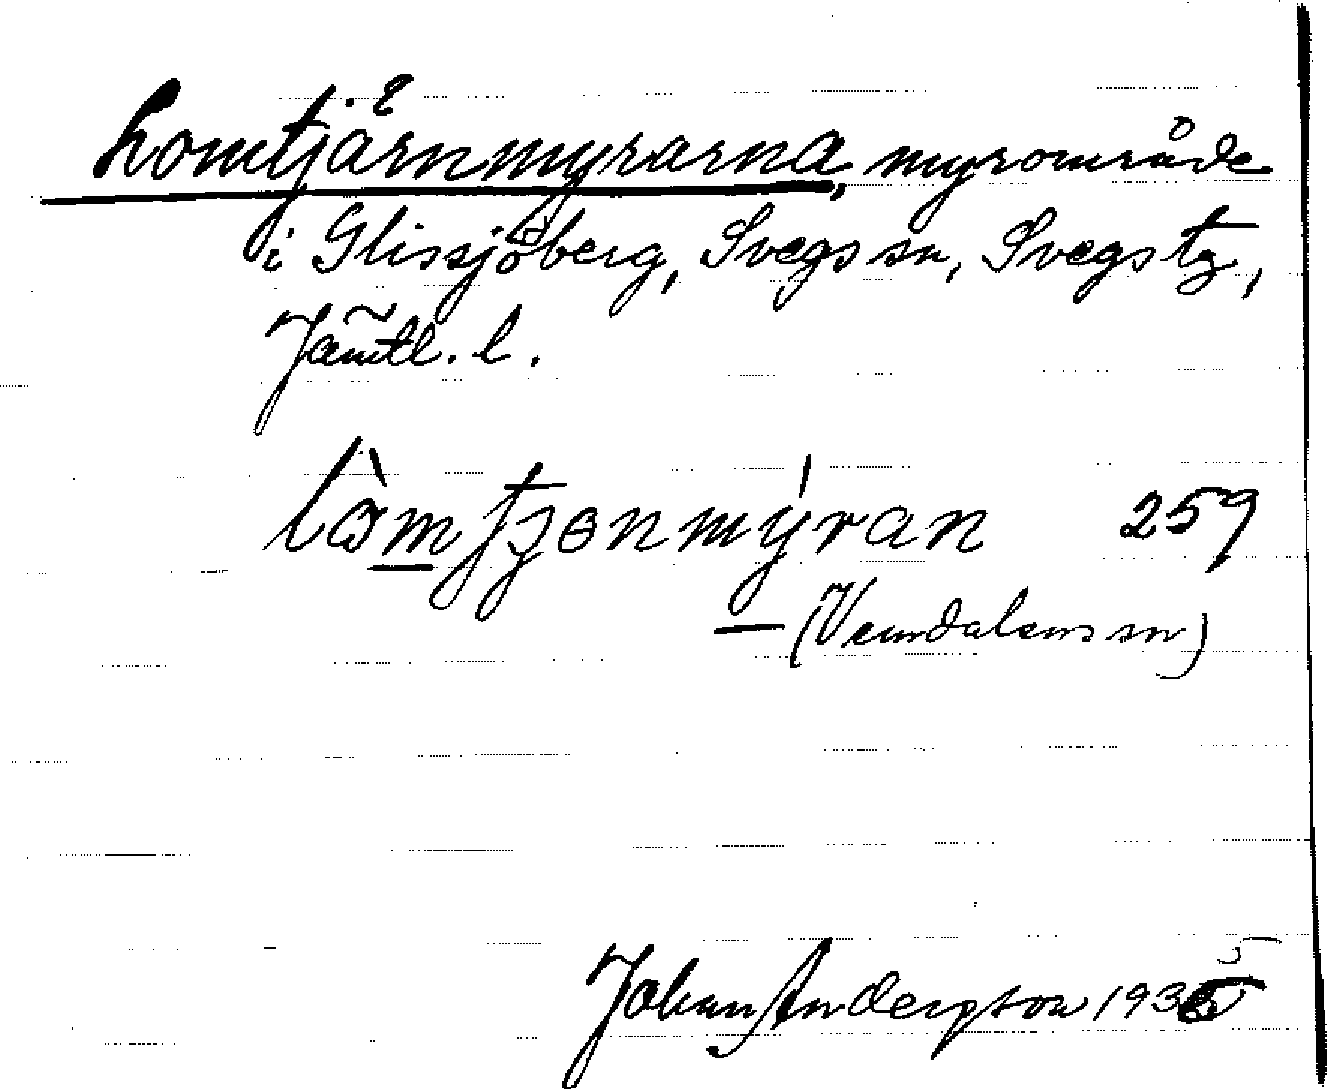 Lomtjärnmyrarna, myrområde
i Glissjöberg, Svegs sn, Svegs tg,
Jämtl. l.
259
(Vemdalens sn)
Johan Anderson 1935